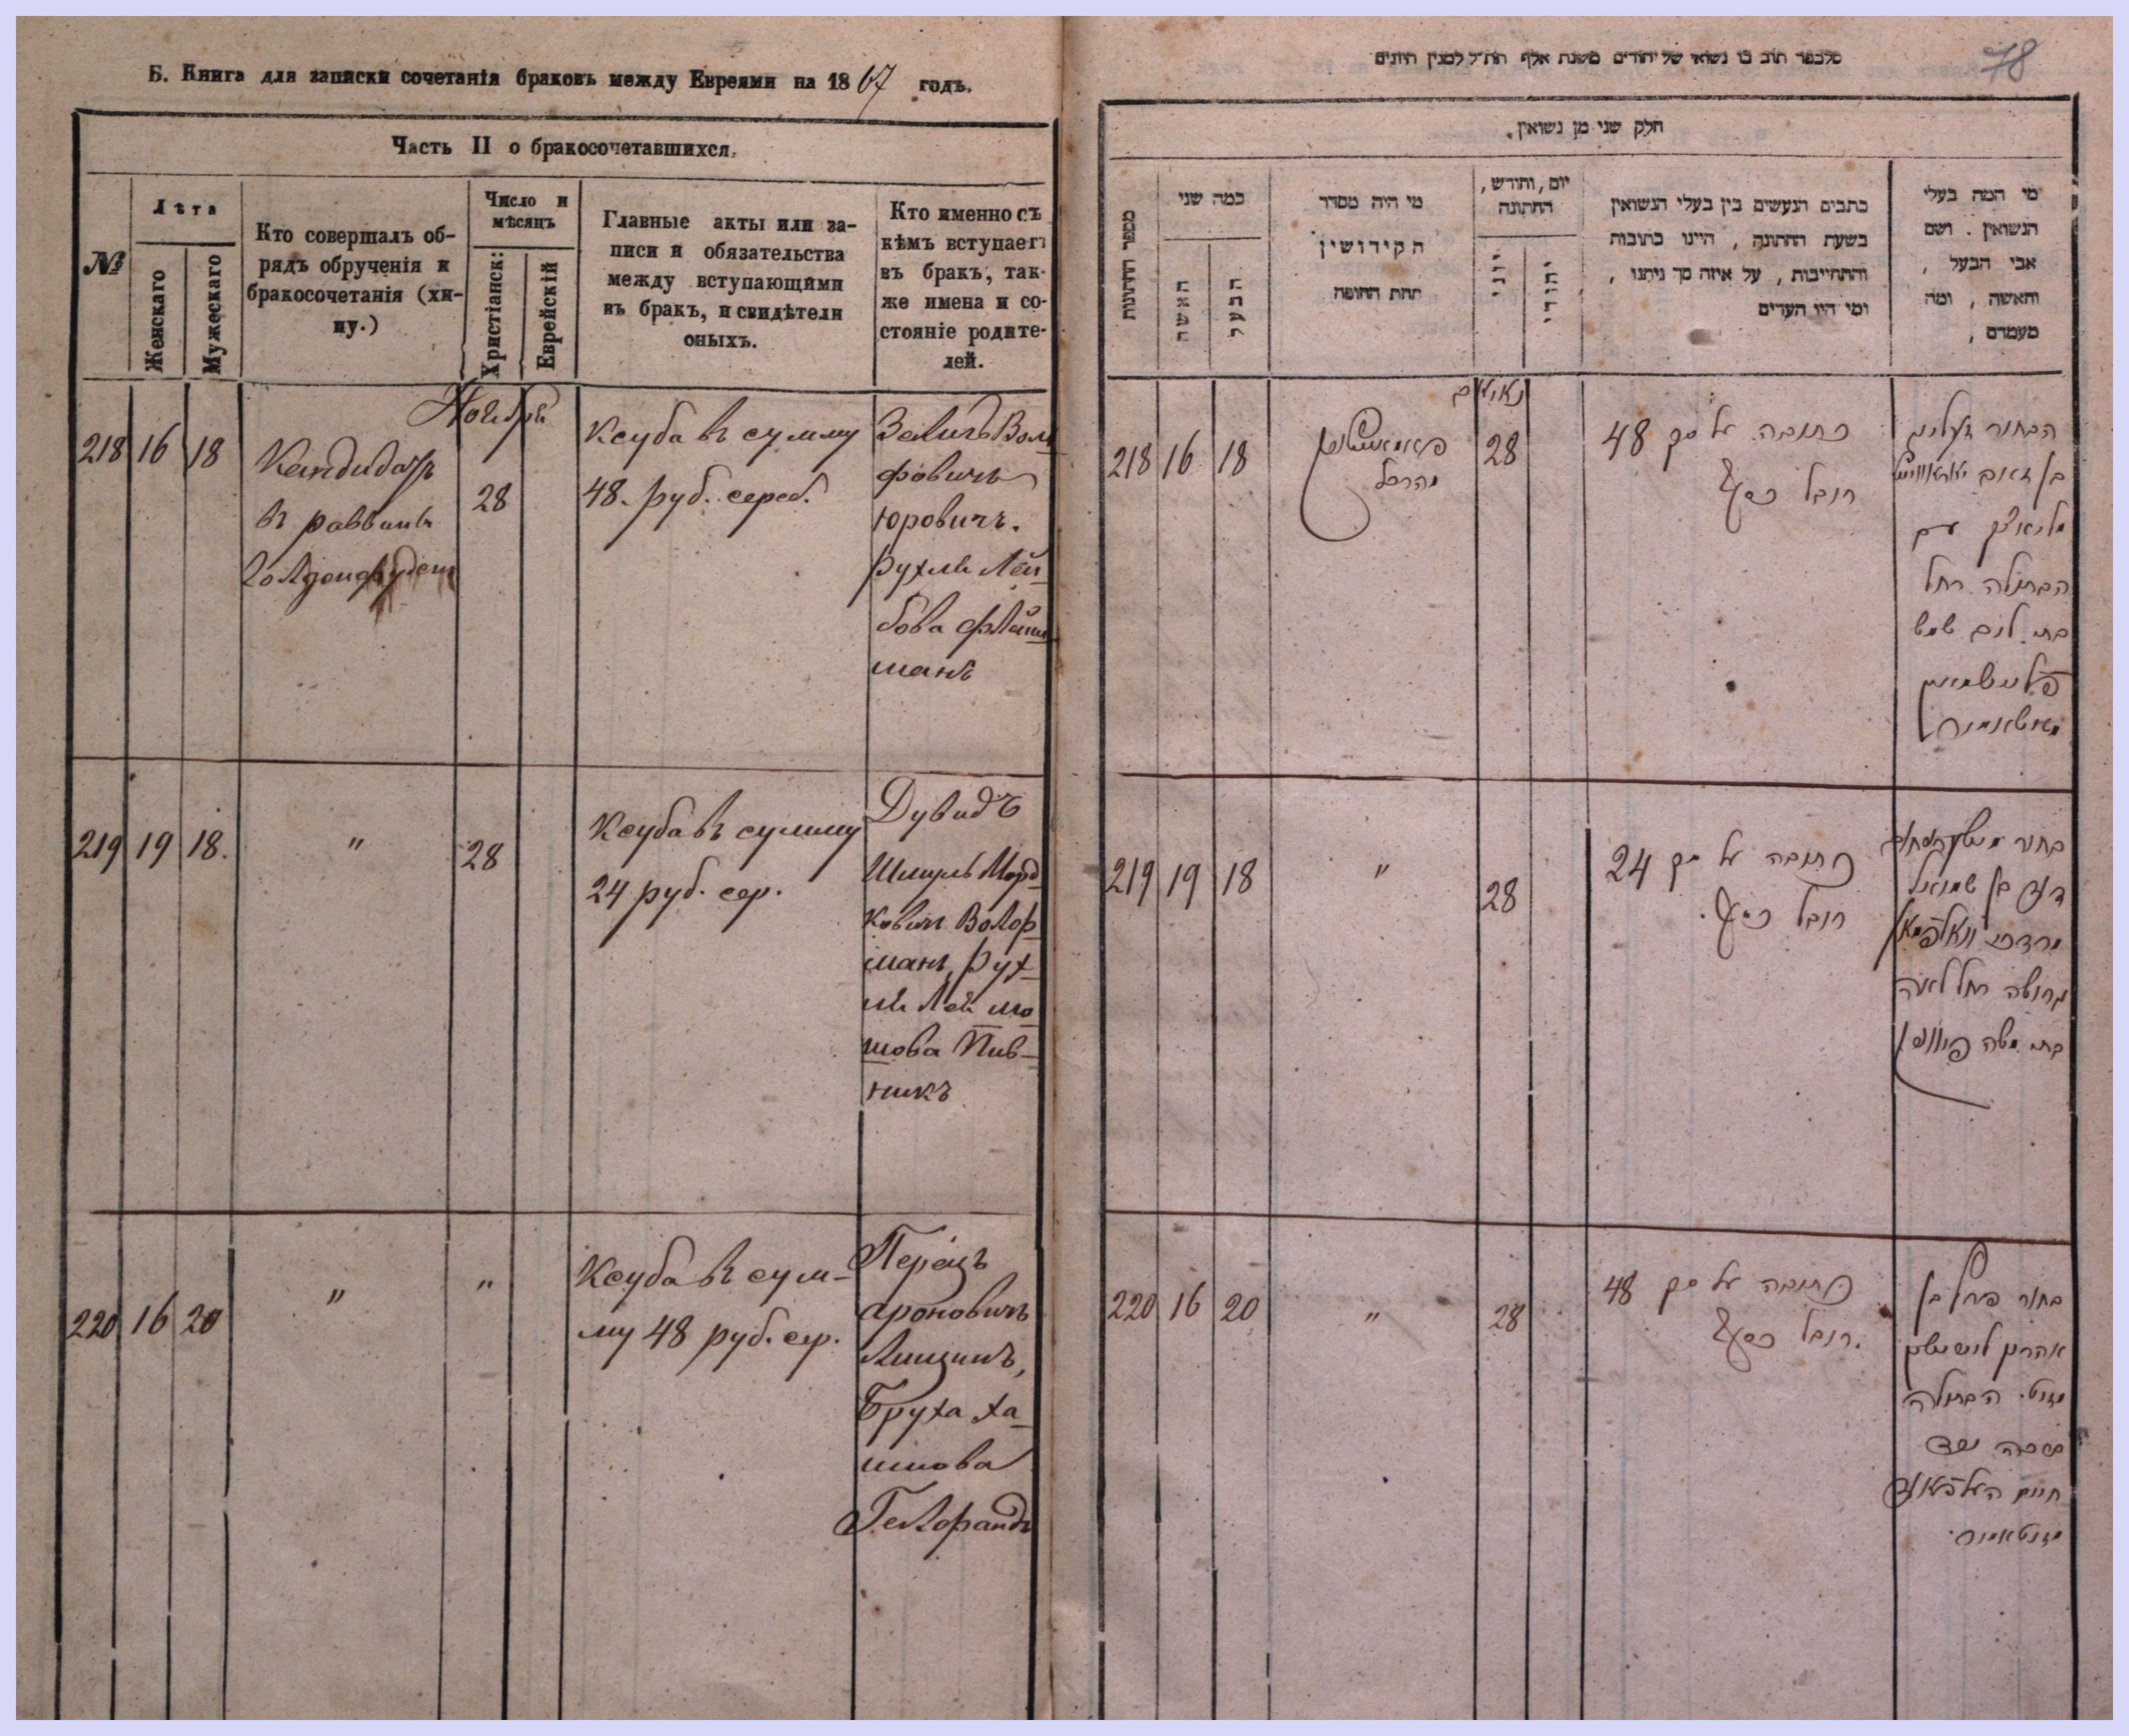 Б. Книга для записки сочетанія браковъ между Евреями на 1867 годъ.
Часть II о бракосочетавшихся.
№
Лѣта
Женскаго
Мужескаго
Кто совершалъ об-
рядъ обрученія и
бракосочетанія (хи-
пу.)
Число и
мѣсяцъ
Христіанск:
Еврейскій
Главные акты или за-
писи и обязательства
между вступающими
въ бракъ, и свидѣтели
оныхъ.
Кто именно съ
кѣмъ вступаетъ
въ бракъ, так-
же имена и со-
стояніе родите-
лей.
Ноября
218 16 18
Кандидатъ
въ раввины
28
Ксуба въ сумму
48. руб. сереб.
Зелигъ Воль
фовичъ
Юровичъ.
Рухля Лей
бова Флейш
манъ
219 19 18.
"
28
Ксуба въ сумму
24 руб. сер.
Дувидъ
Шмуль Морд
ковичъ Волф
манъ, Рух
ля Лея Мо
шова Пив-
никъ
220 16 20
"
"
Ксуба въ сум-
му 48 руб. сер.
Перецъ
Ароновичъ
Бруха Ха
имова
Гелфандъ
78
חלק שני מן נשואין.
מספר החתונות
כמה שני
האשה
הבעל
מי היה מסדר
הקידושין
תחת החופה
יום, וחודש,
החתונה
יוני
יהודי
כתבים הנעשים בין בעלי הנשואין
בשעת החתונה, היינו כתובות
והתחייבות, על איזה סך ניתנו,
ומי היו העדים
מי המה בעלי
הנשואין. ושם
אבי הבעל,
והאשה, ומה
מעמדם,
218 16 18
28
כתובה על סך 48
רובל כסף
הבחור זעליג
הבתולה רחל
219 19 18
"
28
כתובה על סך 24
רובל כסף.
דוד בן שמואל
גרושה רחל לאה
בת משה
220 16 20
"
28
כתובה על סך 48
רובל כסף.
בחור פרץ בן
הבתולה